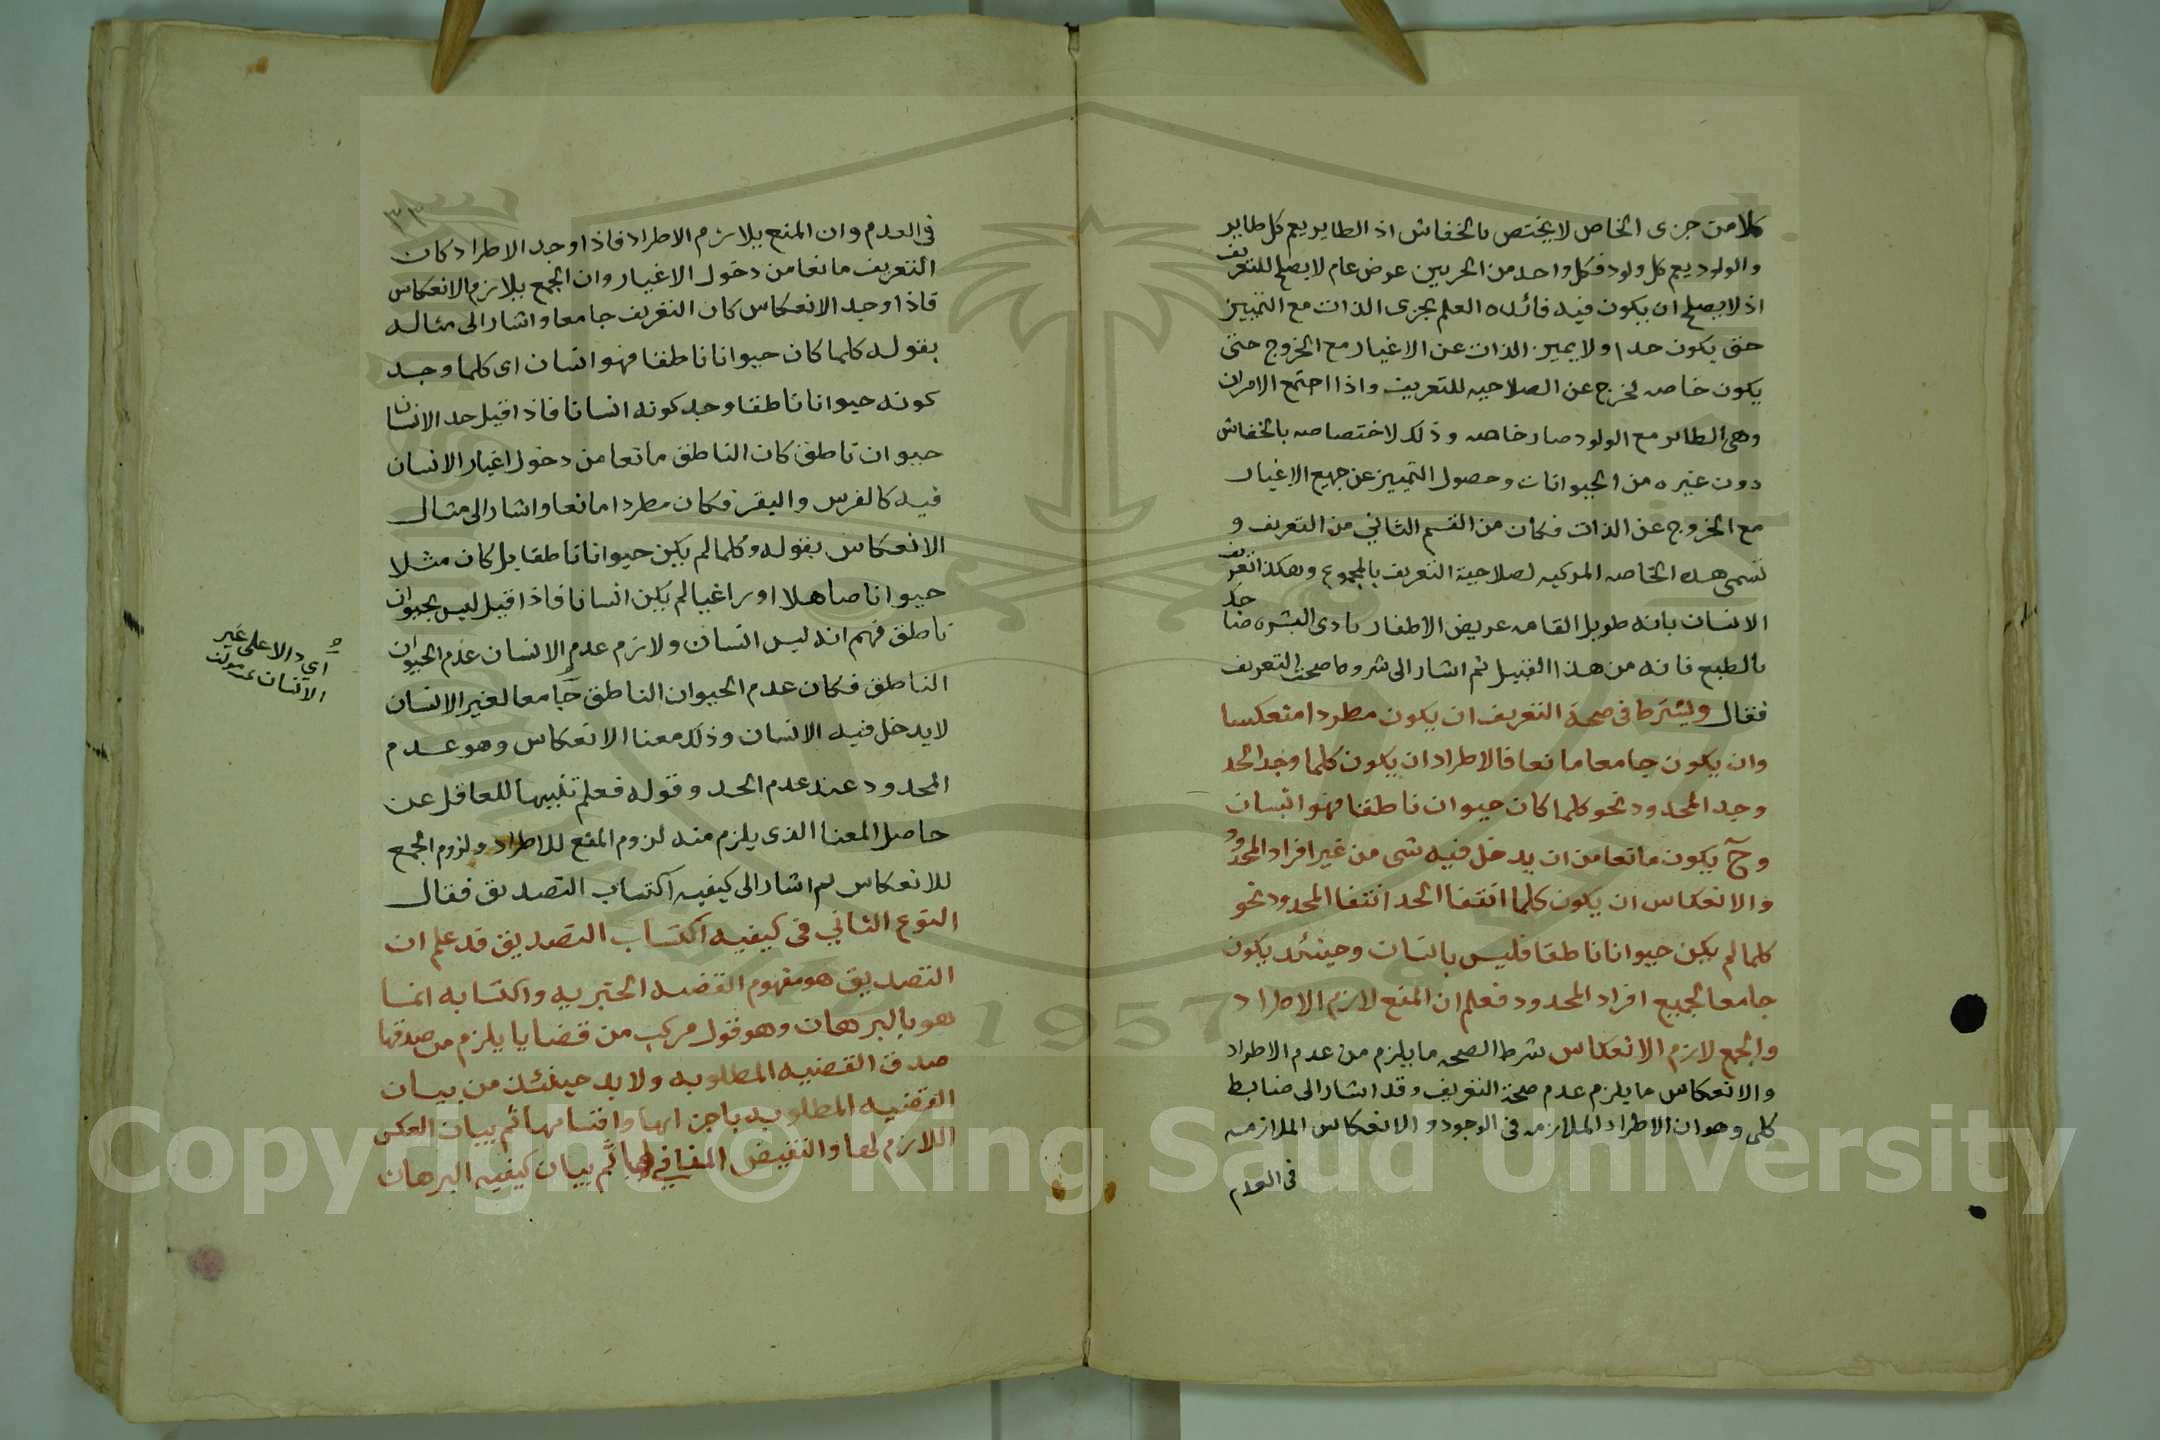 كلا من جزى الخاص لا يختص بالخفاش اذ الطاير يعم كل طاير
والولود يعم كل ولود فكل واحد من الجزيين عرض عام لا يصلح للتعريف
اذ لا يصلح ان يكون فيه فائده العلم بجزى الذات مع التمييز
حتى يكون حدا ولا يميز الذات عن الاغيار مع الخروج حتى
يكون خاصه لخرج عن الصلاحيه للتعريف واذا اجتمع الامران
وهى الطاير مع الولود صار خاصه وذلك لاختصاصه بالخفاش
دون غيره من الحيوانات وحصول التمييز عن جميع الاغيار
مع الخروج عن الذات فكان من القسم الثاني من التعريف و
تسمى هذه الخاصه المركبه لصلاحية التعريف بالمجموع وهكذا تعريف
الانسان بانه طويل القامه عريض الاظفار بادى البشره ضاحك
بالطبع فانه من هذا القبيل ثم اشار الى شروط صحة التعريف
فقال ويشترط في صحة التعريف ان يكون مطردا منعكسا
وان يكون جامعا مانعا فالاطراد ان يكون كلما وجد الحد
وجد المحدود نحو كلما كان حيوان ناطقا فهو انسان
وح يكون مانعا من ان يدخل فيه شى من غير افراد المحدود
والانعكاس ان يكون كلما انتفا الحد انتفا المحدود نحو
كلما لم يكن حيوانا ناطقا فليس بانسان وحينئد يكون
جامعا لجميع افراد المحدود فعلم ان المنع لازم الاطراد
والجمع لازم الانعكاس شرط الصحه ما يلزم من عدم الاطراد
والانعكاس ما يلزم عدم صحة التعريف وقد اشار الى ضابط
كلى وهو ان الاطراد الملازمه في الوجود والانعكاس الملازمه
في العدم
٣٣
في العدم وان المنع يلازم الاطراد فاذا وجد الاطراد كان
التعريف مانعا من دخول الاغيار وان الجمع يلازم الانعكاس
فاذا وجد الانعكاس كان التعريف جامعا واشار الى مثاله
بقوله كلما كان حيوانا ناطقا فهو انسان اى كلما وجد
كونه حيوانا ناطقا وجد كونه انسانا فاذا قيل حد الانسان
حيوان ناطق كان الناطق مانعا من دخول اغيار الانسان
فيه كالفرس والبقر فكان مطردا مانعا واشار الى مثال
الانعكاس بقوله وكلما لم يكن حيوانا ناطقا بل كان مثلا
حيوانا صاهلا او راغيا لم يكن انسانا فاذا قيل ليس بحيوان
ناطق فهم انه ليس انسان ولازم عدم الانسان عدم الحيوان
الناطق فكان عدم الحيوان الناطق جامعا لغير الانسان
لا يدخل فيه الانسان وذلك معنا الانعكاس وهو عدم
المحدود عند عدم الحد وقوله فعلم تنبيها للعاقل عن
حاصل المعنا الذى يلزم منه لزوم المنع للاطراد ولزوم الجمع
للانعكاس ثم اشار الى كيفيه اكتساب التصديق فقال
النوع الثاني في كيفيه اكتساب التصديق قد علم ان
التصديق هو مفهوم القضيه الخبريه واكتسابه انما
هو بالبرهان وهو قول مركب من قضايا يلزم من صدقها
صدق القضيه المطلوبه ولا بد حينئذ من بيان
القضيه المطلوبه باجزايها واقسامها ثم بيان العكس
اللازم لها والنقيض المنافي لها ثم بيان كيفيه البرهان
الاعلى غير
الانسان
Copyright © King Saud University
1957